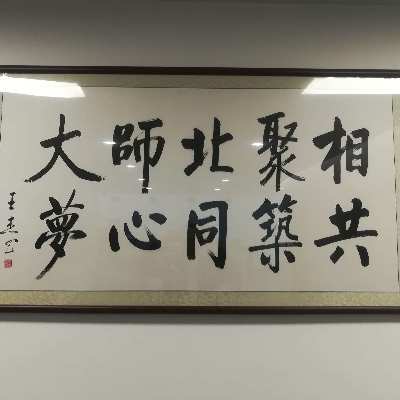 相聚北師大
共築同心夢
王杰